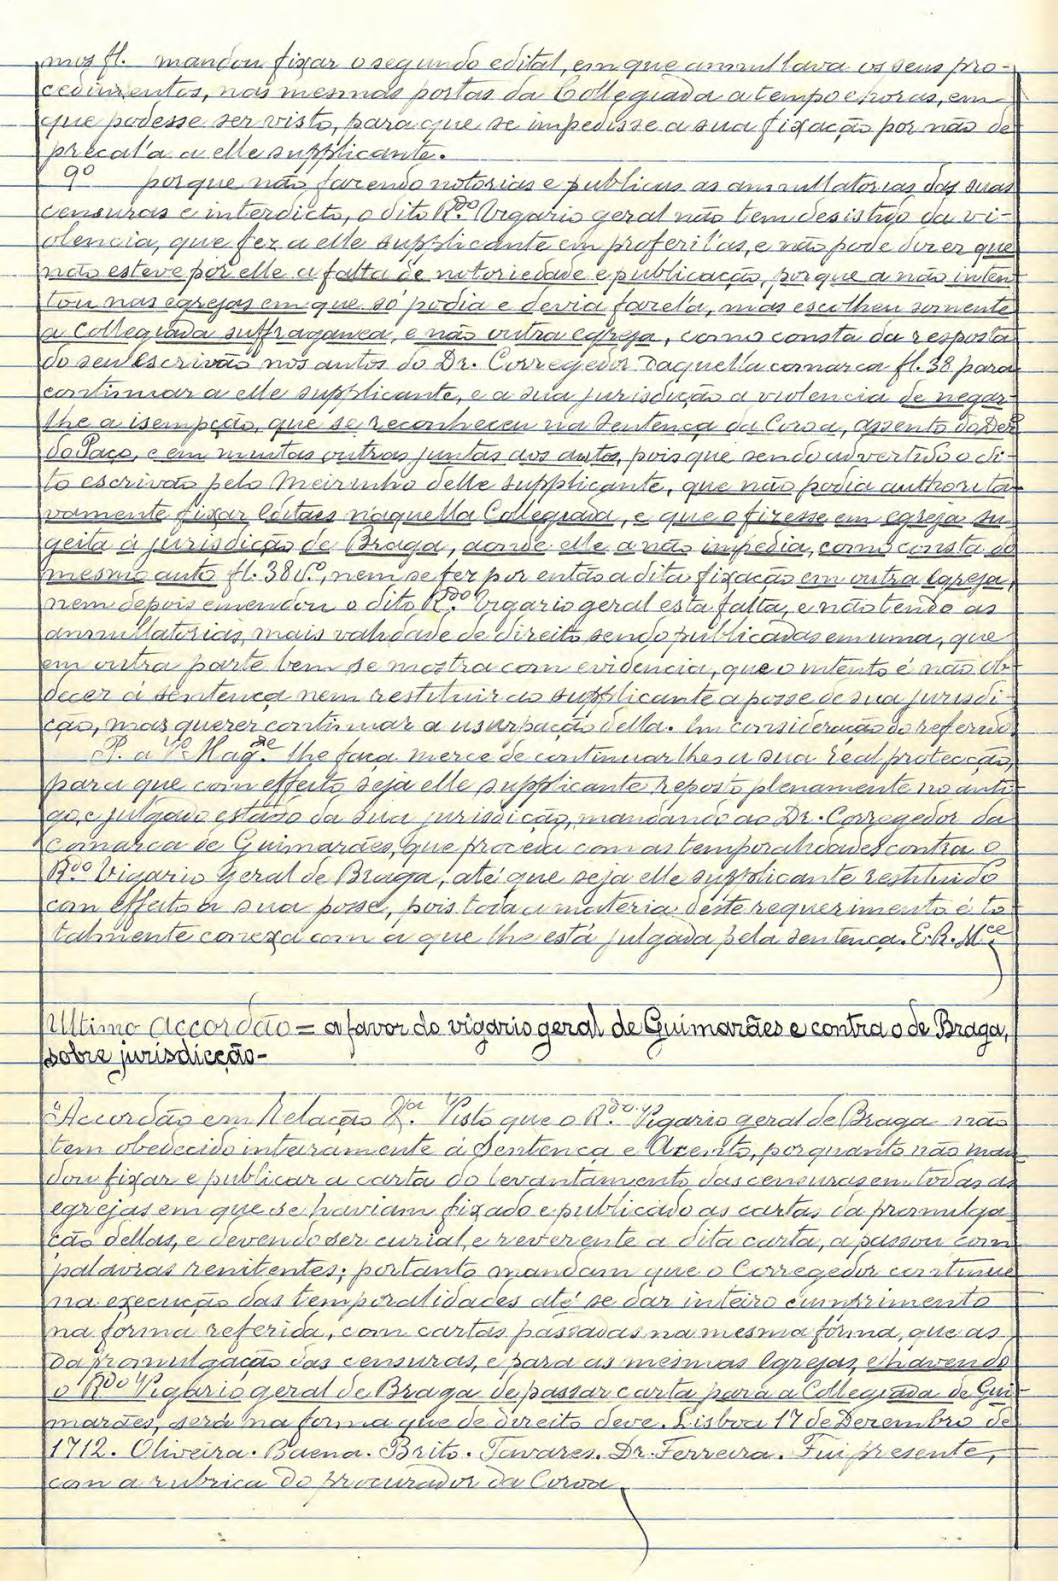 mos fl. mandou fixar o segundo edital, em que annullava os seus pro-
cedimentos, nas mesmas portas da Collegiada a tempo e horas, em
que podesse ser visto, para que se impedisse a sua fixação por não de
precal'a a elle supplicante.
9º porque não fazendo notorias e publicas as annullatorias das suas
censuras e interdicto, o dito R.do Vigario geral não tem desistido da vi-
olencia, que fez a elle supplicante em proferil'as, e não pode dizer que
não esteve por elle a falta de notoriedade e publicação, porque a não inten
tou nas egrejas em que só podia e devia fazel'a, mas escolheu somente
a Collegiada suffraganea, e não outra egreja, como consta da resposta
do seu escrivão nos autos do Dr. Corregedor daquella comarca fl. 38 para
continuar a elle supplicante, e a sua jurisdição a violencia de negar-
lhe a isempção, que se reconheceu na Sentença da Coroa, assento do Dez.
do Paço, e em muitas outras juntas aos autos, pois que sendo advertido o di-
to escrivão pelo Meirinho delle supplicante, que não podia authorita-
vamente fixar Editaes naquella Collegiada, e que o fizesse em egreja su-
geita á jurisdicção de Braga, aonde elle a não impedia, como consta do
mesmo auto fl. 38 v.º, nem se fez por então a dita fixação em outra Egreja,
nem depois emendou o dito R.do Vigario geral esta falta, e não tendo as
annullatorias, mais validade de direito sendo publicadas em uma, que
em outra parte bem se mostra com evidencia, que o intento é não obe-
decer á sentença nem restituir ao supplicante a posse de sua jurisdi-
ção, mas querer continuar a usurpação della. Em consideração do referido
P. a V. Mag.de lhe faça merce de continuar lhe a sua real protecção,
para que com effeito seja elle supplicante reposto plenamente no anti-
go, e julgado estado da sua jurisdicção, mandando ao Dr. Corregedor da
comarca de Guimarães, que proceda com as temporalidades contra o
R.do Vigario Geral de Braga, até que seja elle supplicante restituido
com effeito á sua posse, pois toda a materia deste requerimento é to
talmente conexa com a que lhe está julgada pela sentença. E. R. M.ce
Ultimo Accordão = a favor do vigario geral de Guimarães e contra o de Braga,
sobre jurisdicção-
"Accordão em Relação &.ª Visto que o R.do Vigario geral de Braga não
tem obedecido inteiramente á Sentença e Acento, porquanto não man-
dou fixar e publicar a carta do levantamento das censuras em todas as
egrejas em que se haviam fixado e publicado as cartas da promulga-
ção dellas, e devendo ser curial, e reverente a dita carta, a passou com
palavras renitentes; portanto mandam que o Corregedor continue
na execução das temporalidades até se dar inteiro cumprimento
na forma referida, com cartas passadas na mesma fórma, que as
da promulgação das censuras, e para as mesmas Egrejas, e havendo
o R.do Vigario geral de Braga de passar carta para a Collegiada de Gui-
marães, será na forma que de direito deve. Lisboa 17 de Dezembro de
1712. Oliveira. Baena. Brito. Tavares. Dr. Ferreira. Fui presente,
com a rubrica do procurador da Coroa